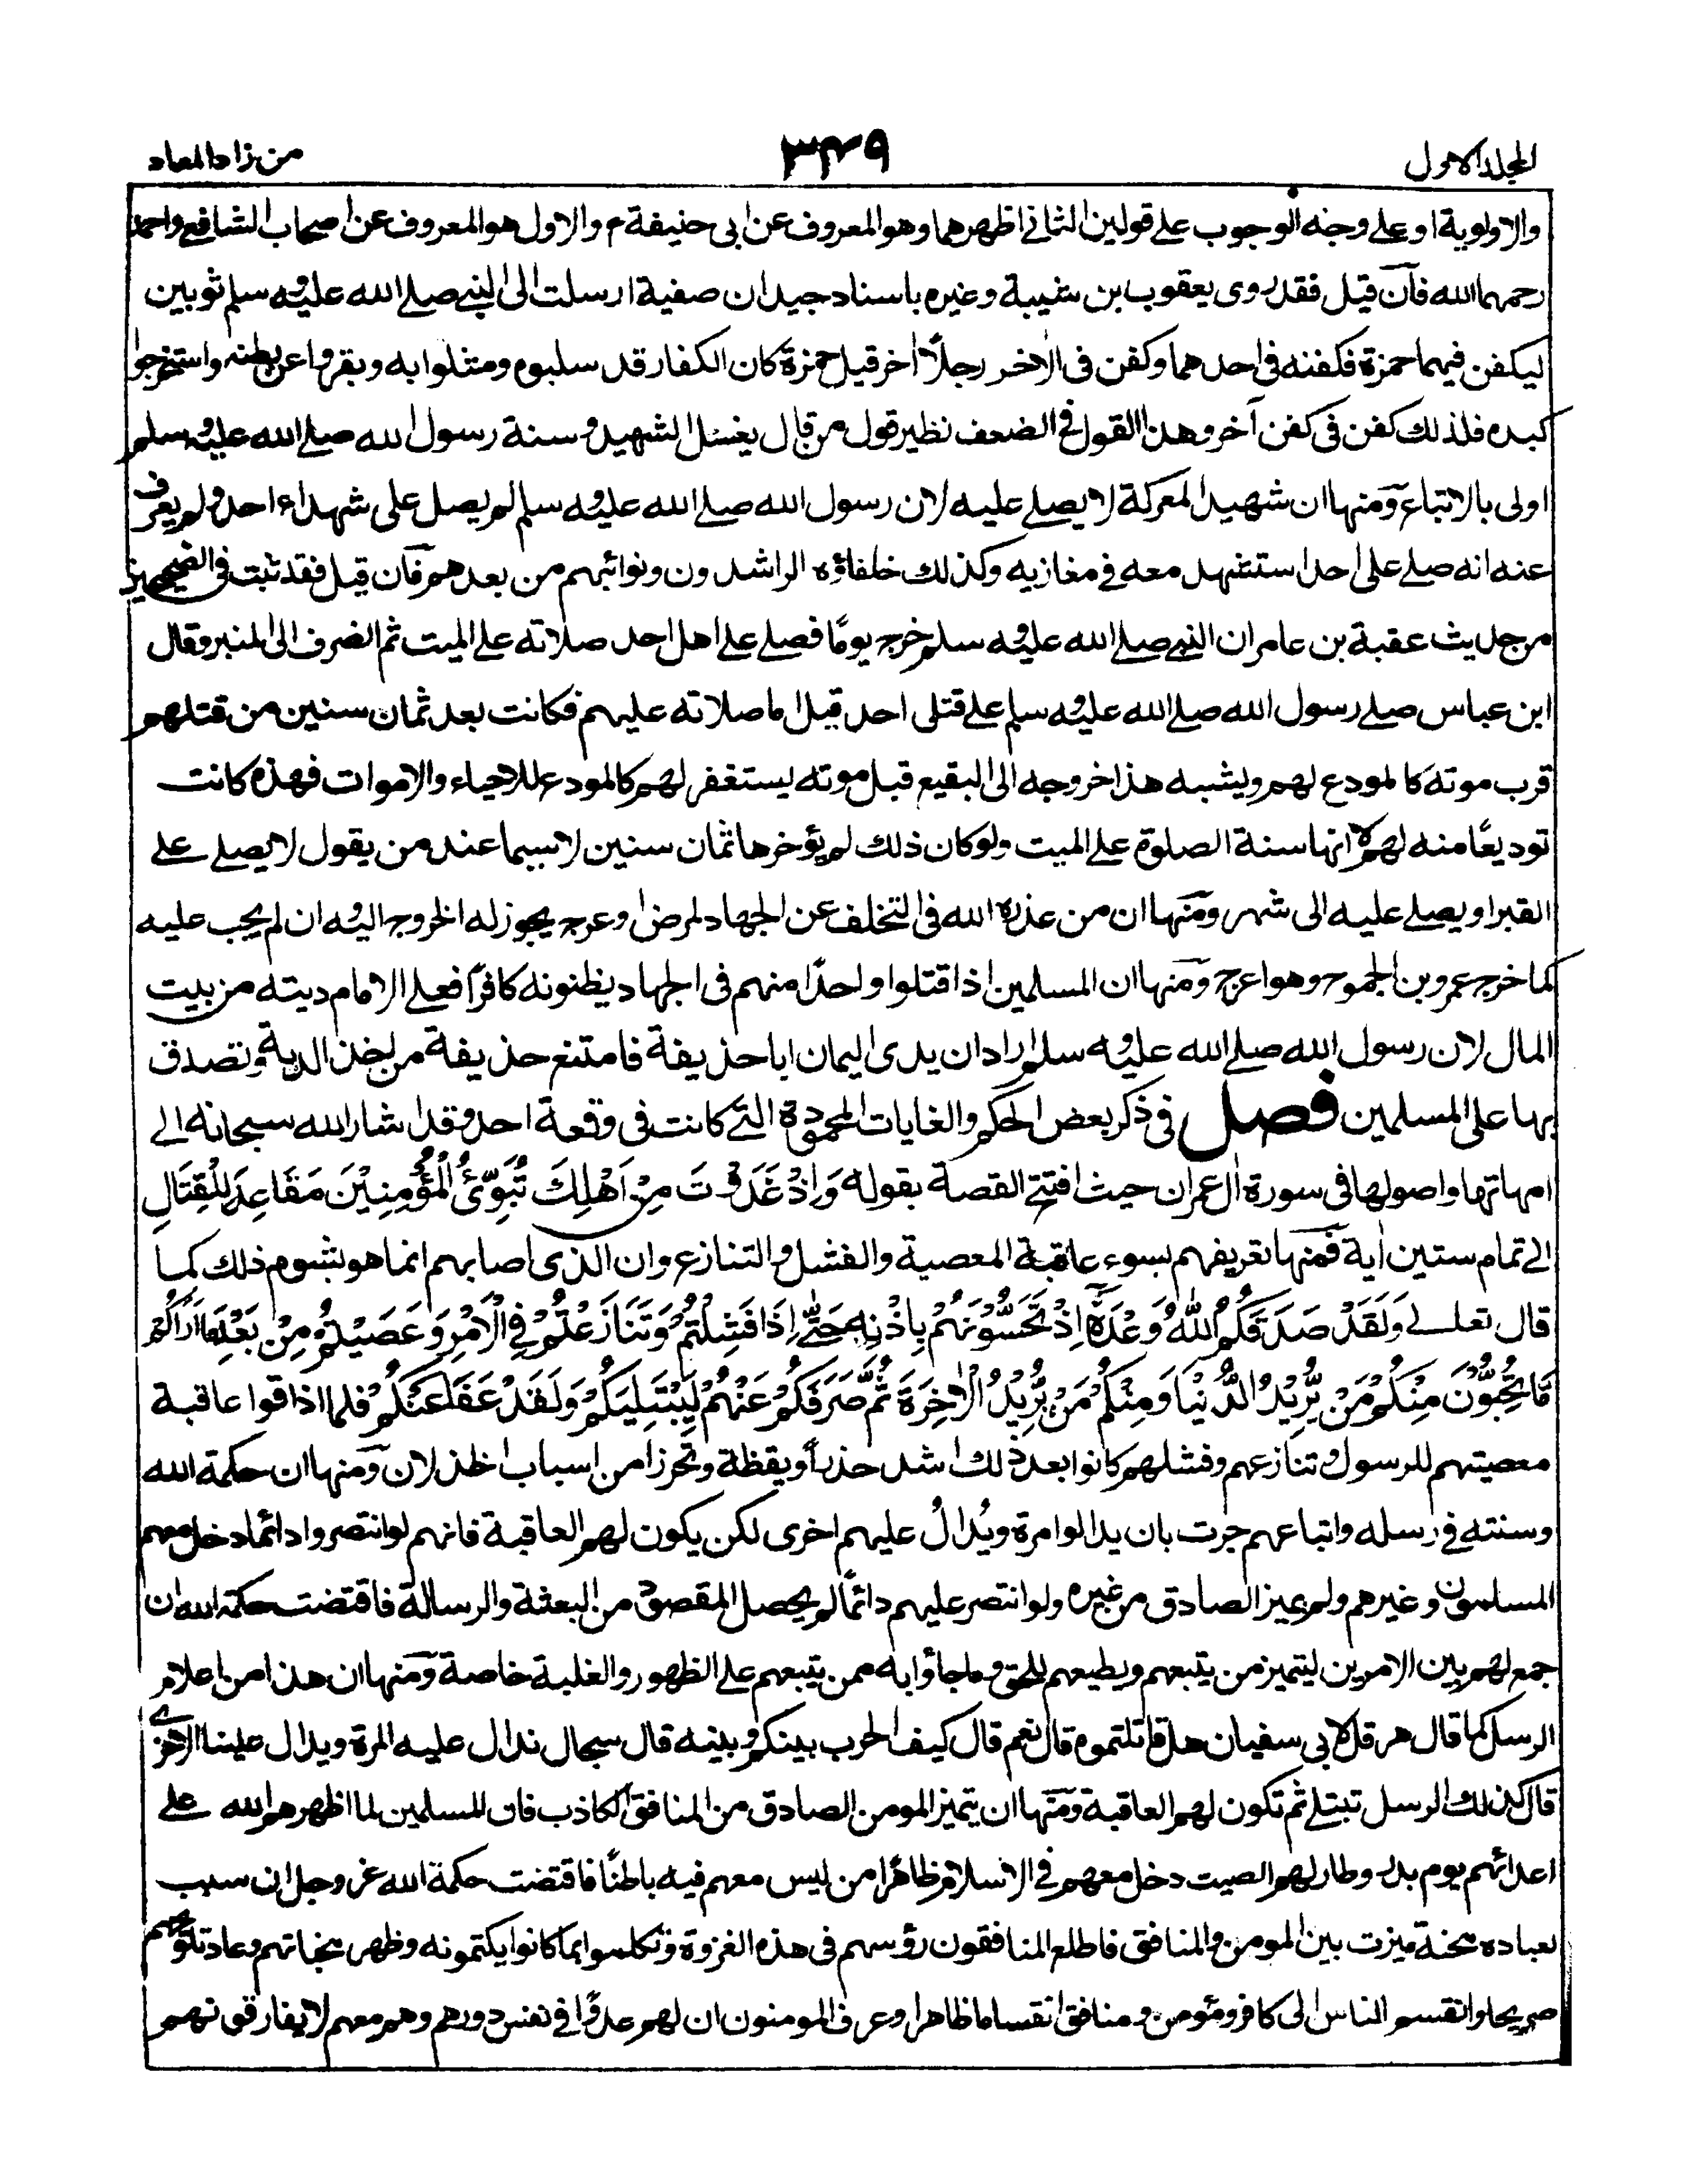 المجلد الاول
۳۴۹
من زاد المعاد
والاولوية او على وجه الوجوب على قولين الثاني اظهرهما وهو المعروف عن ابى حنيفة رح والاول هو المعروف عن اصحاب الشافعي واحمد
رحمهما الله فان قيل فقد روى يعقوب بن شيبة وغيره باسناد جيد ان صفية ارسلت الى النبي صلى الله عليه وسلم ثوبين
ليكفن فيهما حمزة فكفنه فى احدهما وكفن فى الاخر رجلًا اخر قيل حمزة كان الكفار قد سلبوه ومثلوا به وبقروا عن بطنه واستخرجوا
كبده فلذلك كفن فى كفن آخر وهذا القول فى الضعف نظير قول من قال يغسل الشهيد وسنة رسول الله صلى الله عليه وسلم
اولى بالاتباع ومنها ان شهيد المعركة لا يصلى عليه لان رسول الله صلى الله عليه وسلم لم يصل على شهداء احد ولم يعرف
عنه انه صلى على احد استشهد معه فى مغازيه وكذلك خلفاؤه الراشدون ونوائبهم من بعدهم فان قيل فقد ثبت فى الصحيحين
من حديث عقبة بن عامر ان النبي صلى الله عليه وسلم خرج يومًا فصلى على اهل احد صلاته على الميت ثم انصرف الى المنبر وقال
ابن عباس صلى رسول الله صلى الله عليه وسلم على قتلى احد قيل اما صلاته عليهم فكانت بعد ثمان سنين من قتلهم
قرب موته كالمودع لهم ويشبه هذا خروجه الى البقيع قبل موته يستغفر لهم كالمودع للاحياء والاموات فهذه كانت
توديعًا منه لهم لا انها سنة الصلوة على الميت ولو كان ذلك لم يؤخرها ثمان سنين لا سيما عند من يقول لا يصلى على
القبر او يصلى عليه الى شهر ومنها ان من عذره الله فى التخلف عن الجهاد لمرض او عرج يجوز له الخروج اليه وان لم يجب عليه
كما خرج عمرو بن الجموح وهو اعرج ومنها ان المسلمين اذا قتلوا واحدًا منهم فى الجهاد يظنونه كافرًا فعلى الامام ديته من بيت
المال لان رسول الله صلى الله عليه وسلم اراد ان يدى اليمان ابا حذيفة فامتنع حذيفة من اخذ الدية وتصدق
بها على المسلمين فصل فى ذكر بعض الحكم والغايات المحمودة التى كانت فى وقعة احد وقد اشار الله سبحانه الى
امهاتها واصولها فى سورة ال عمران حيث افتتح القصة بقوله وَاِذْ غَدَوْتَ مِنْ اَهْلِكَ تُبَوِّئُ الْمُؤْمِنِيْنَ مَقَاعِدَ لِلْقِتَالِ
الى تمام ستين اية فمنها تعريفهم بسوء عاقبة المعصية والفشل والتنازع وان الذى اصابهم انما هو بشوم ذلك كما
قال تعالى وَلَقَدْ صَدَقَكُمُ اللّٰهُ وَعْدَهٗ اِذْ تَحُسُّوْنَهُمْ بِاِذْنِهٖ حَتّٰى اِذَا فَشِلْتُمْ وَتَنَازَعْتُمْ فِى الْاَمْرِ وَعَصَيْتُمْ مِنْ بَعْدِ مَا اَرٰىكُمْ
مَّا تُحِبُّوْنَ مِنْكُمْ مَنْ يُّرِيْدُ الدُّنْيَا وَمِنْكُمْ مَنْ يُّرِيْدُ الْاٰخِرَةَ ثُمَّ صَرَفَكُمْ عَنْهُمْ لِيَبْتَلِيَكُمْ وَلَقَدْ عَفَا عَنْكُمْ فلما اذاقوا عاقبة
معصيتهم للرسول وتنازعهم وفشلهم كانوا بعد ذلك اشد حذرًا ويقظة وتحرزا من اسباب الخذلان ومنها ان حكمة الله
وسنته فى رسله واتباعهم جرت بان يدالوا مرة ويُدالُ عليهم اخرى لكن يكون لهم العاقبة فانهم لو انتصروا دائما دخل معهم
المسلمون وغيرهم ولم يميز الصادق من غيره ولو انتصر عليهم دائمًا لم يحصل المقصود من البعثة والرسالة فاقتضت حكمة الله ان
جمع لهم بين الامرين ليتميز من يتبعهم ويطيعهم للحق وما جاؤا به ممن يتبعهم على الظهور والغلبة خاصة ومنها ان هذا من اعلام
الرسل كما قال هرقل لابى سفيان هل قاتلتموه قال نعم قال كيف الحرب بينكم وبينه قال سجال ندال عليه المرة ويدال علينا الاخرى
قال كذلك الرسل تبتلى ثم تكون لهم العاقبة ومنها ان يتميز المومن الصادق من المنافق الكاذب فان المسلمين لما اظهرهم الله على
اعدائهم يوم بدر وطار لهم الصيت دخل معهم فى الاسلام ظاهرًا من ليس معهم فيه باطنًا فاقتضت حكمة الله عز وجل ان سبب
لعباده محنة ميزت بين المومن والمنافق فاطلع المنافقون رؤسهم فى هذه الغزوة وتكلموا بما كانوا يكتمونه وظهر مخباتهم وعاد تلويحهم
صريحا وانقسم الناس الى كافر ومؤمن ومنافق انقساما ظاهرا وعرف المومنون ان لهم عدوًا فى نفس دورهم وهم معهم لا يفارقونهم